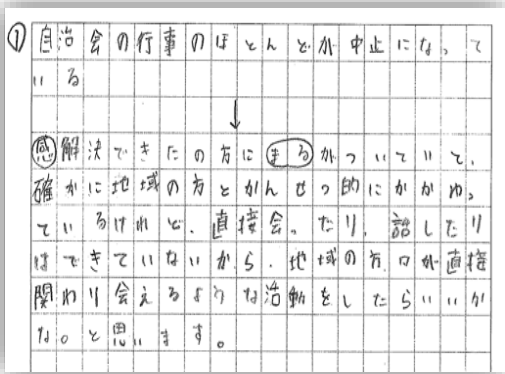 ① 自治会の行事のほとんどが中止になって
いる
↓
感 解決できたの方にまるがついていて、
確かに地域の方とかんせつ的にかかわっ
ているけれど、直接会ったり、話したり
はできていないから、地域の方々が直接
関わり会えるような活動をしたらいいか
な。と思います。